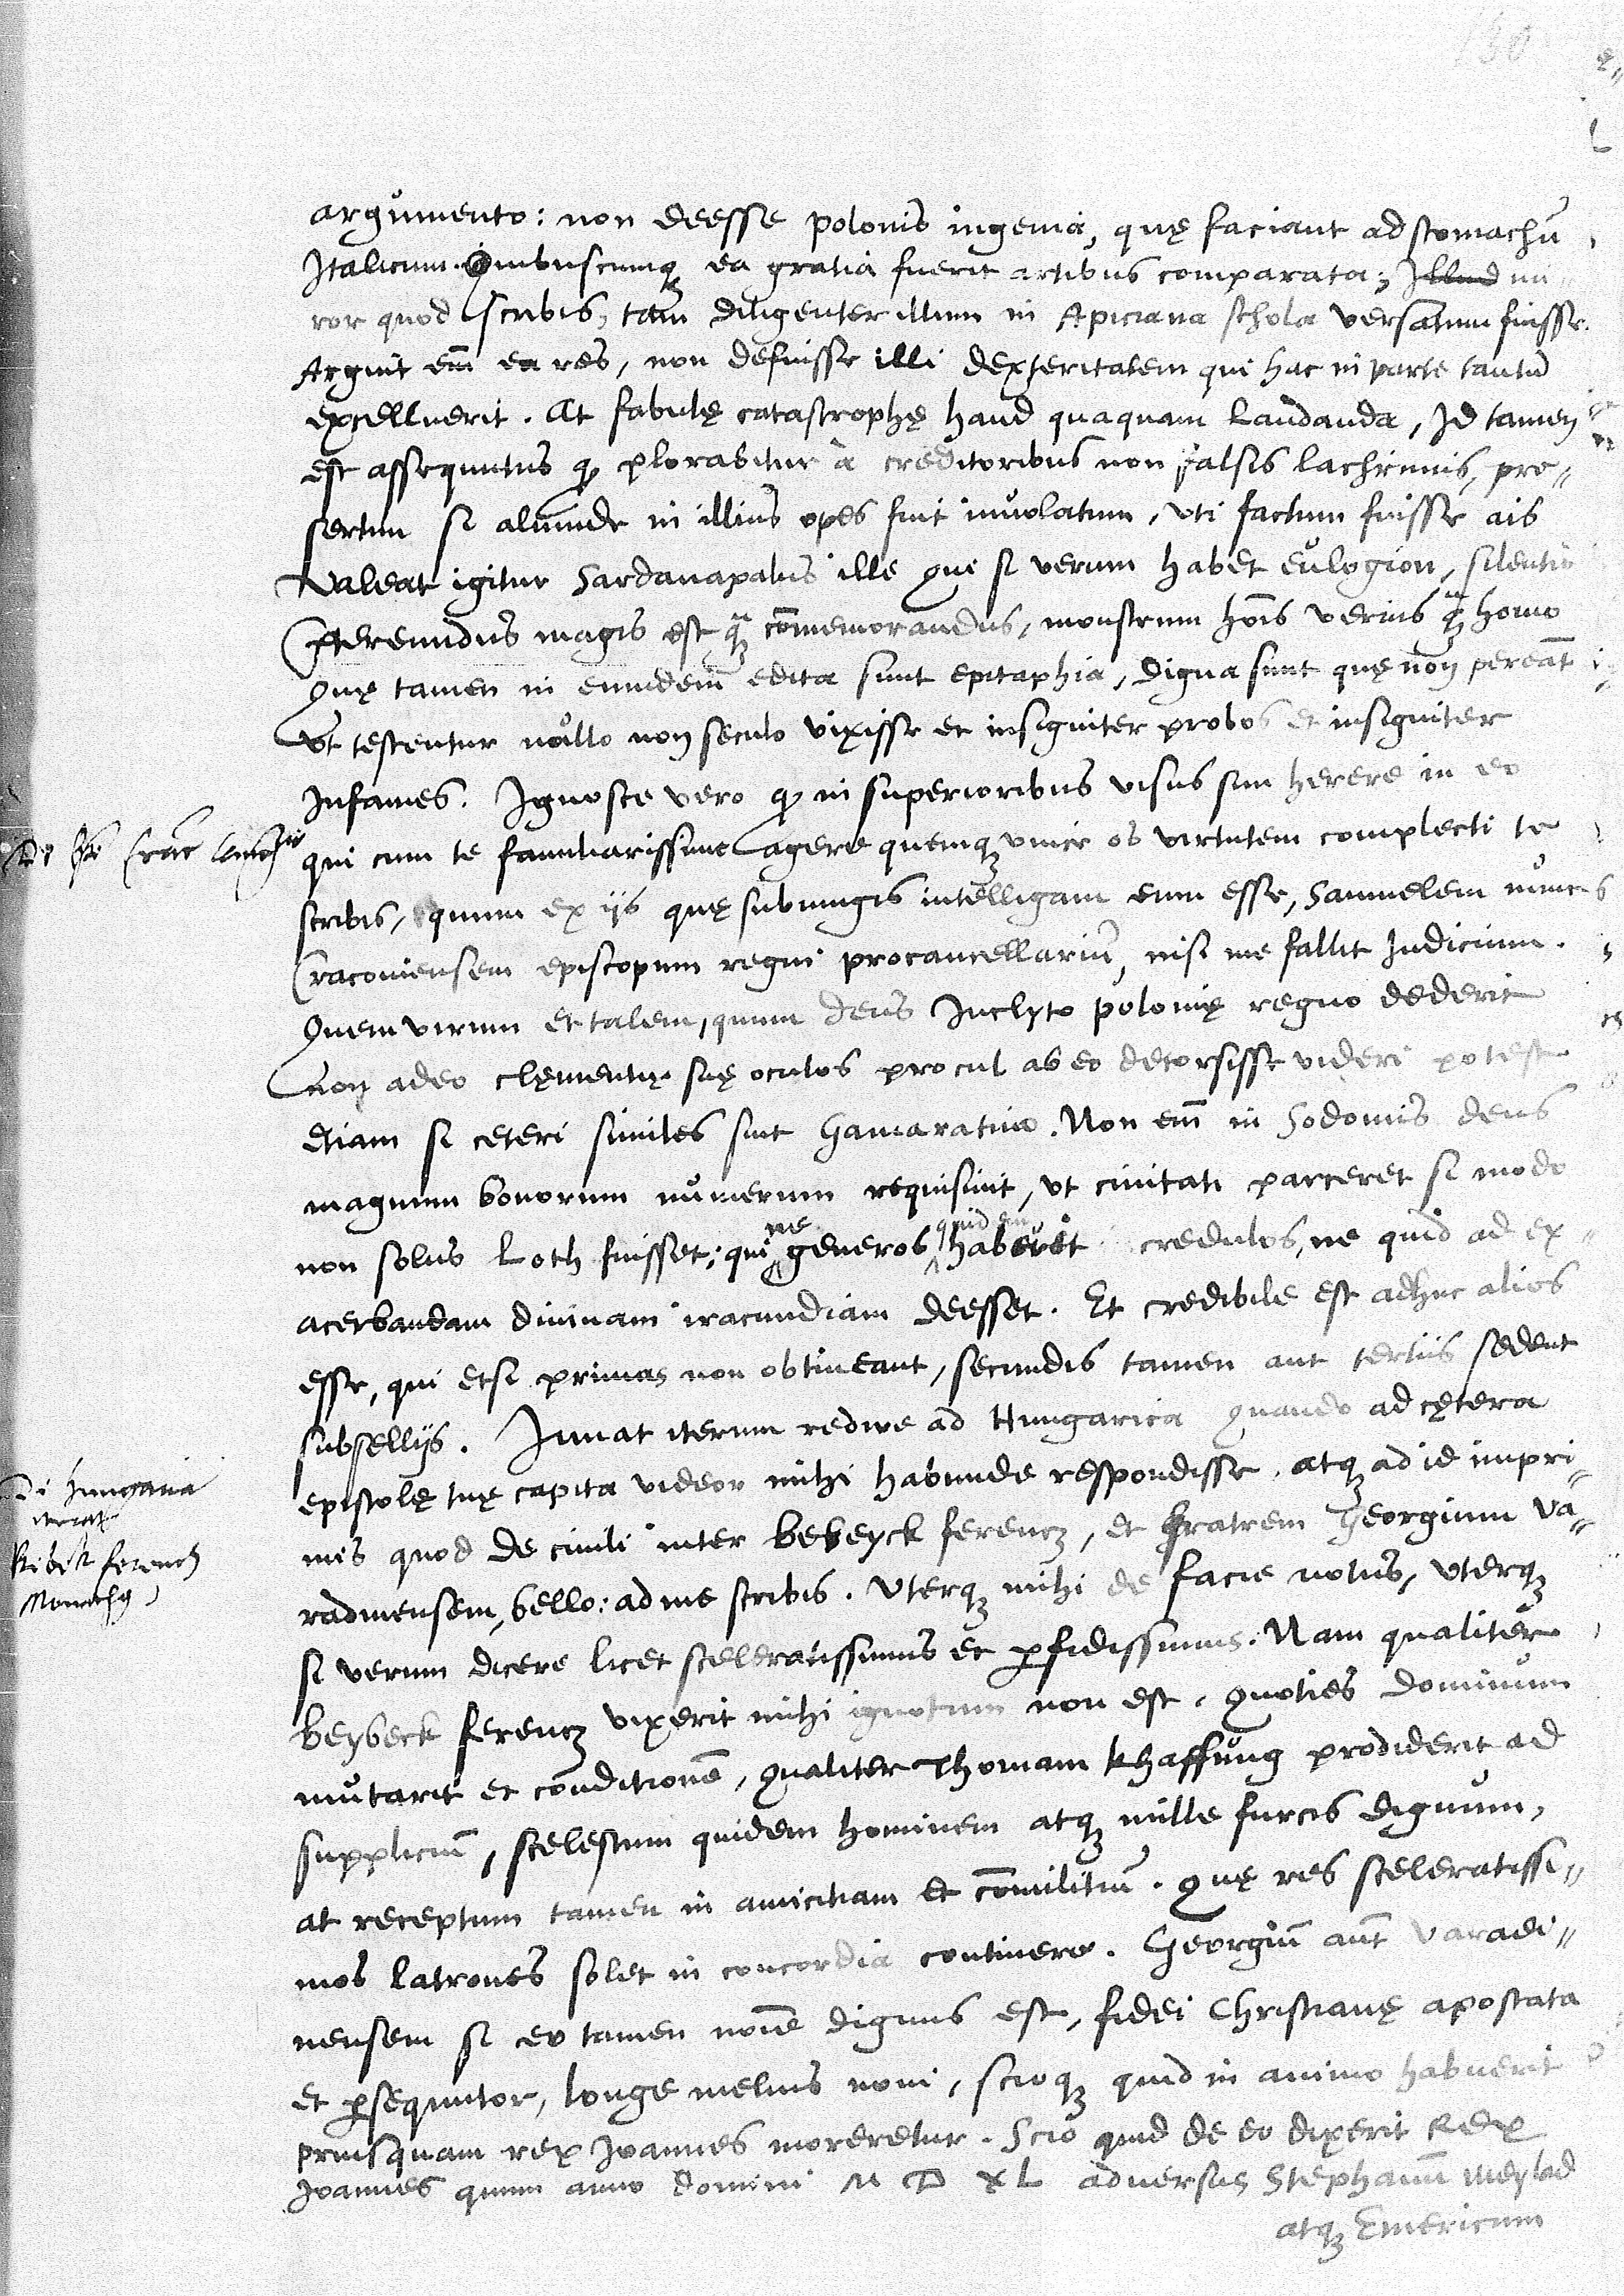 130
argumento: non deesse polonis ingenia, quę faciant ad stomachū
Italicum. Quibuscumq ea gratia fuerit artibus comparata; Illud mi
ror quod scribis, tam diligenter illum in Apiciana schola versatum fuisse.
Arguit em̄ ea res, non defuisse illi dexteritatem qui hac in parte tantū
excelluerit. At fabulę catastrophę haud quaquam laudanda, Id tamen
est assequutus q plorabitur à creditoribus non falsis lachrimis, pre„
sertim si aliunde in illius opes fuit inuolatum, vti factum fuisse ais
Valeat igitur Sardanapalus ille Qui si verum habet eulogion, silentio
ptereundus magis est q̄ cōmemorandus, monstrum hoīs verius q̄ homo
Quę tamen in eiusdem edita sunt epitaphia, digna sunt quę non pereāt
Vt testentur nullo non seculo vixisse et insigniter probos et insigniter
Infames. Ignosce vero q in superioribus visus sim herere in eo
qui cum te familiarissime agere quemq vnice ob virtutem complecti te
scribis, quum ex ijs quę subiungis intelligam eum esse, Samuelem nunc
Cracouiensem episcopum regni procancellariū, nisi me fallit Iudicium.
Quem virum et talem, quum deus Inclyto polonię regno dederit
Non adeo clęmentię suę oculos procul ab eo detorsisse videri potest
etiam si ceteri similes sint Gamaratino. Non em̄ in Sodomis deus
magnum bonorum numerum requisiuit, vt ciuitati parceret si modo
non solus Loth fuisset; qui ne generos quidem haberet credulos, ne quid ad ex„
acerbandam diuinam iracundiam deesset. Et credibile est adhuc alios
esse, qui etsi primas non obtineant, secundis tamen aut tertiis sedent
subsellijs. Iuuat iterum redire ad Hungarica quando ad cętera
epistolę tuę capita videor mihi habunde respondisse, atq ad id impri„
mis quod de ciuili inter bebeyck ferencz, et fratrem Georgium Va„
radinensem, bello: ad me scribis. Vterq mihi de facie notus, vterq
si verum dicere licet sceleratissimus et pfidissimus. Nam qualiter
beybeck ferencz vixerit mihi ignotum non est, quoties dominum
mutarit et conditionē, qualiter Thomam khaffung prodiderit ad
suppliciū, scelestum quidem hominem atq mille furcis dignum,
at receptum tamen in amicitiam et cōmilitiū. Quę res sceleratissi„
mos latrones solet in concordia continere. Georgiū aūt varadi„
nensem si eo tamen noīe dignus est, fidei Christianę apostata
et psequutor, longe melius noui, scioq quid in animo habuerit
priusquam rex Ioannes moreretur. Scio quid de eo dixerit Rex
Ioannes quum anno domini M D XL aduersus Stephanū Meylad
atq Emericum
di Hungaria
iterat
ferencz
Monachg